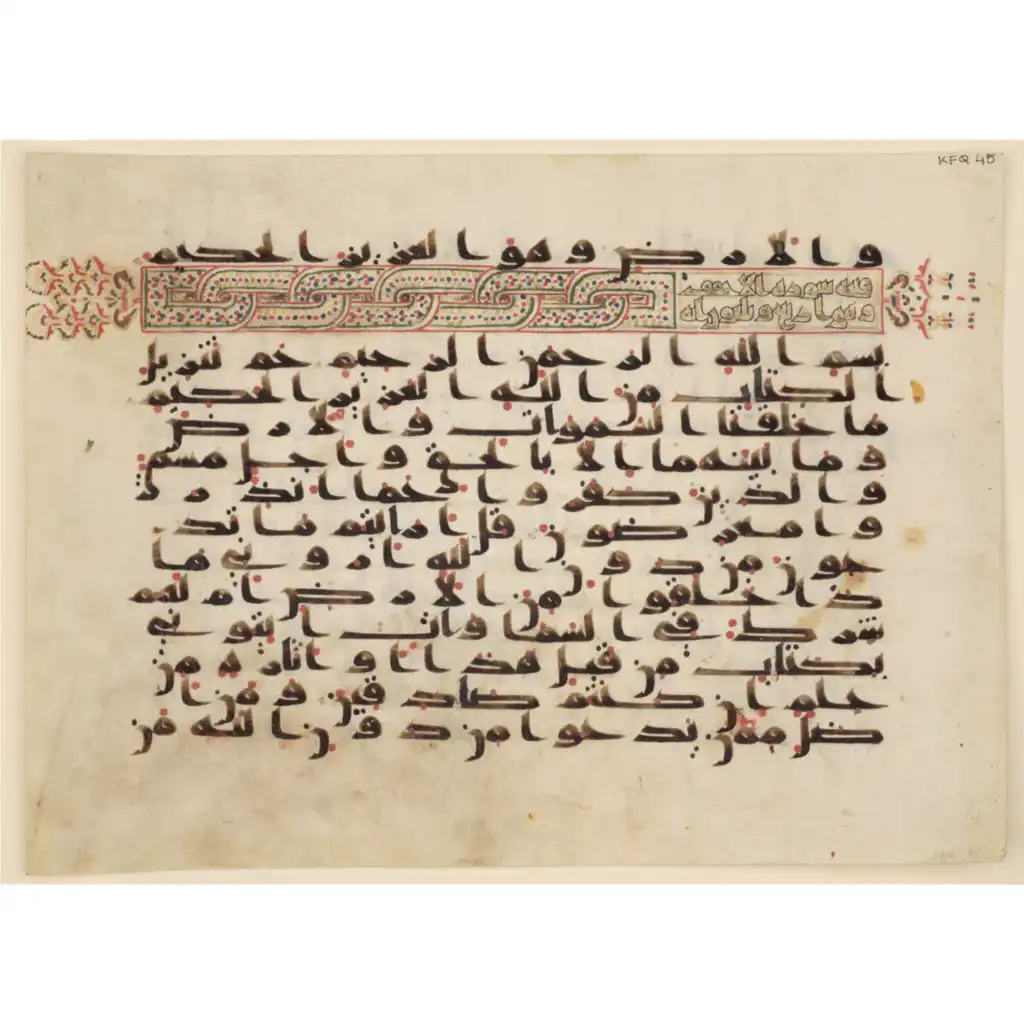 KFQ 45
و الارض و هو العزيز الحكيم
سورة الاحقاف
وهي اربع وثلثون اية
بسم الله الرحمن الرحيم حم تنزيل
الكتاب من الله العزيز الحكيم
ما خلقنا السموات و الارض
و ما بينهما الا بالحق و اجل مسمى
و الذين كفروا عما انذرو
ا معرضون قل ارايتم ما تد
عون من دون الله اروني ما
ذا خلقوا من الارض ام لهم
شرك في السموات ايتوني
بكتاب من قبل هذا او اثارة من
علم ان كنتم صادقين و من ا
ضل ممن يدعوا من دون الله من